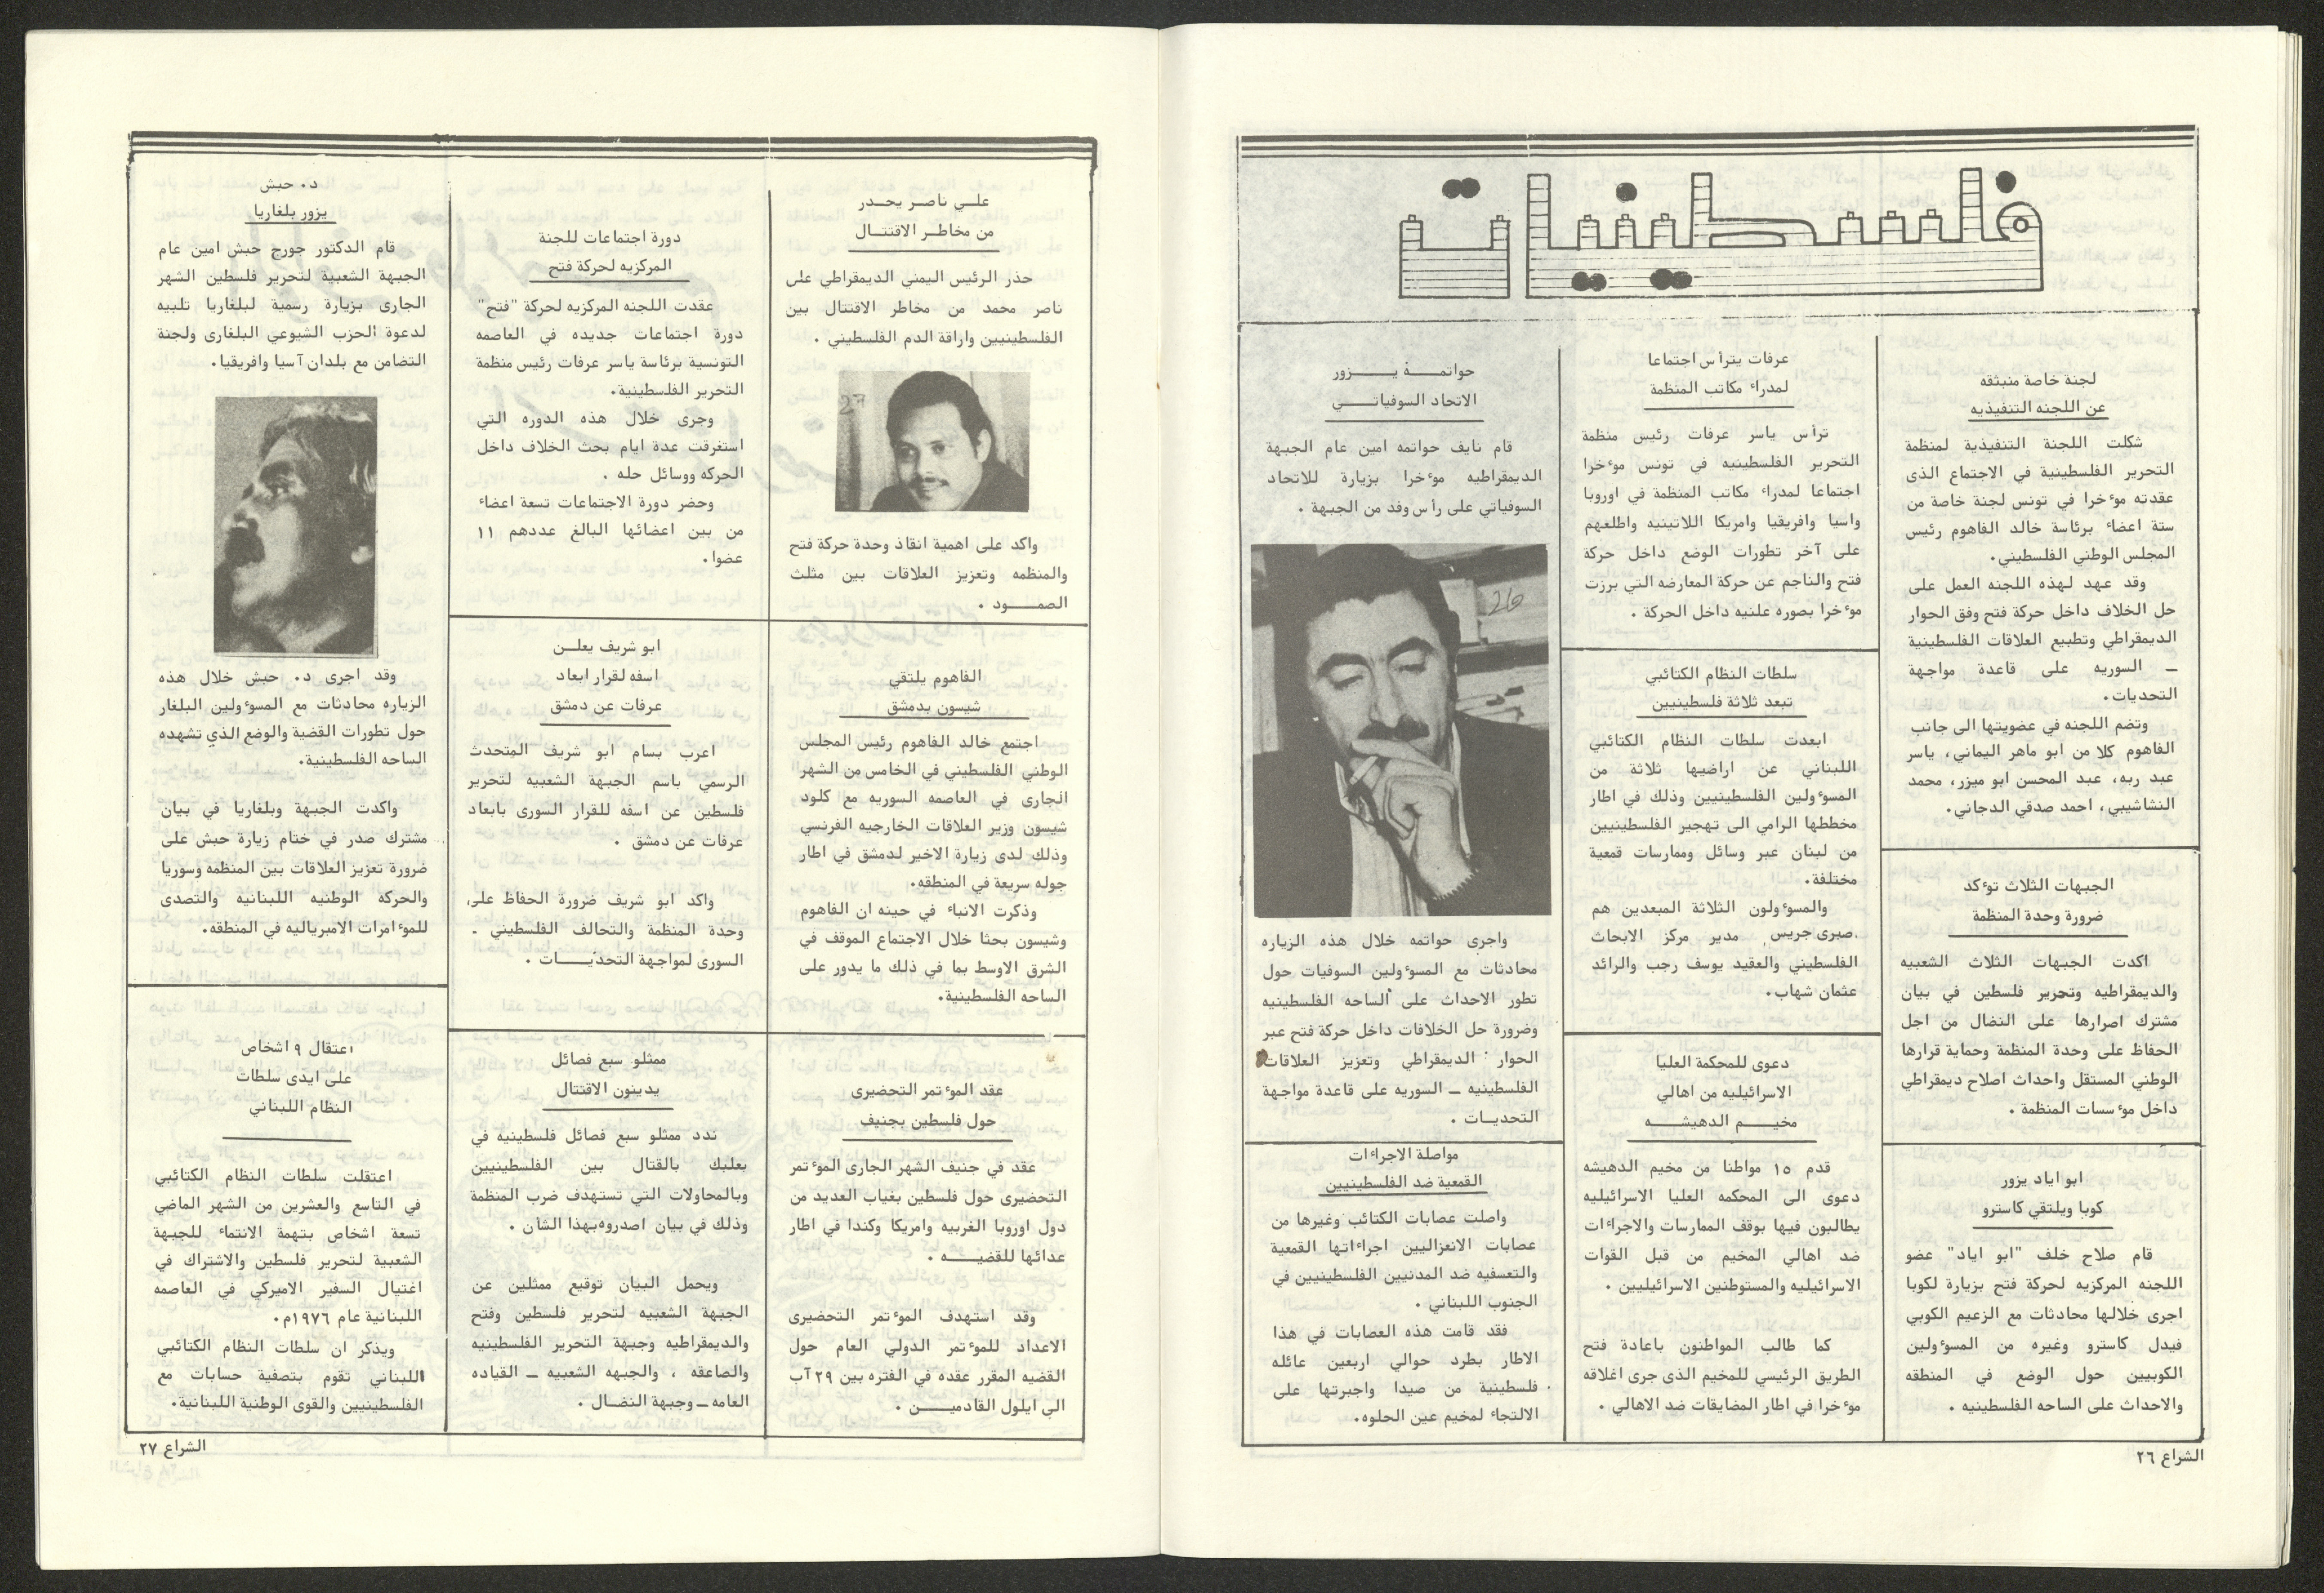 فلسطينيات
لجنة خاصة منبثقه
عن اللجنه التنفيذيه
شكلت اللجنة التنفيذية لمنظمة
التحرير الفلسطينية في الاجتماع الذى
عقدته مو٠خرا في تونس لجنة خاصة من
ستة اعضاء برئاسة خالد الفاهوم رئيس
المجلس الوطني الفلسطيني.
وقد عهد لهذه اللجنه العمل على
حل الخلاف داخل حركة فتح وفق الحوار
الديمقراطي وتطبيع العلاقات الفلسطينية
ـ السوريه على قاعدة مواجهة
التحديات.
وتضم اللجنه في عضويتها الى جانب
الفاهوم كلا من ابو ماهر اليماني، ياسر
عبد ربه، عبد المحسن ابو ميزر، محمد
النشاشيبي، احمد صدقي الدجاني.
الجبهات الثلاث توءكد
ضرورة وحدة المنظمة
اكدت الجبهات الثلاث الشعبيه
والديمقراطيه وتحرير فلسطين في بيان
مشترك اصرارها على النضال من اجل
الحفاظ على وحدة المنظمة وحماية قرارها
الوطني المستقل واحداث اصلاح ديمقراطي
داخل موءسسات المنظمة .
ابو اياد يزور
كوبا ويلتقي كاسترو
قام صلاح خلف "ابو اياد" عضو
اللجنه المركزيه لحركة فتح بزيارة لكوبا
اجرى خلالها محادثات مع الزعيم الكوبي
فيدل كاسترو وغيره من المسوءولين
الكوبيين حول الوضع في المنطقه
والاحداث على الساحه الفلسطينيه .
عرفات يترأس اجتماعا
لمدراء مكاتب المنظمة
ترأس ياسر عرفات رئيس منظمة
التحرير الفلسطينيه في تونس موءخرا
اجتماعا لمدراء مكاتب المنظمة في اوروبا
واسيا وافريقيا وامريكا اللاتينيه واطلعهم
على آخر تطورات الوضع داخل حركة
فتح والناجم عن حركة المعارضه التي برزت
موءخرا بصوره علنيه داخل الحركة .
سلطات النظام الكتائبي
تبعد ثلاثة فلسطينيين
ابعدت سلطات النظام الكتائبي
اللبناني عن اراضيها ثلاثة من
المسوءولين الفلسطينيين وذلك في اطار
مخططها الرامي الى تهجير الفلسطينيين
من لبنان عبر وسائل وممارسات قمعية
مختلفة.
والمسوءولون الثلاثة المبعدين هم
صبرى جريس مدير مركز الابحاث
الفلسطيني والعقيد يوسف رجب والرائد
عثمان شهاب.
دعوى للمحكمة العليا
الاسرائيليه من اهالي
مخيـــم الدهيشـــه
قدم ١٥ مواطنا من مخيم الدهيشه
دعوى الى المحكمه العليا الاسرائيليه
يطالبون فيها بوقف الممارسات والاجراءات
ضد اهالي المخيم من قبل القوات
الاسرائيليه والمستوطنين الاسرائيليين .
كما طالب المواطنون باعادة فتح
الطريق الرئيسي للمخيم الذى جرى اغلاقه
موءخرا في اطار المضايقات ضد الاهالي .
حواتمـــة يـــــزور
الاتحاد السوفياتـــي
قام نايف حواتمه امين عام الجبهة
الديمقراطيه موءخرا بزيارة للاتحاد
السوفياتي على رأس وفد من الجبهة .
26
واجرى حواتمه خلال هذه الزياره
محادثات مع المسوءولين السوفيات حول
تطور الاحداث على الساحه الفلسطينيه
وضرورة حل الخلافات داخل حركة فتح عبر
الحوار الديمقراطي وتعزيز العلاقات
الفلسطينيه ـ السوريه على قاعدة مواجهة
التحديـات .
مواصلة الاجراءات
القمعية ضد الفلسطينيين
واصلت عصابات الكتائب وغيرها من
عصابات الانعزاليين اجراءاتها القمعية
والتعسفيه ضد المدنيين الفلسطينيين في
الجنوب اللبناني .
فقد قامت هذه العصابات في هذا
الاطار بطرد حوالي اربعين عائله
فلسطينية من صيدا واجبرتها على
الالتجاء لمخيم عين الحلوه.
الشراع ٢٦
علـي ناصر يحـدر
من مخاطـر الاقتتـال
حذر الرئيس اليمني الديمقراطي على
ناصر محمد من مخاطر الاقتتال بين
الفلسطينيين واراقة الدم الفلسطيني .
27
واكد على اهمية انقاذ وحدة حركة فتح
والمنظمه وتعزيز العلاقات بين مثلث
الصمــــود .
الفاهوم يلتقي
شيسون بدمشق
اجتمع خالد الفاهوم رئيس المجلس
الوطني الفلسطيني في الخامس من الشهر
الجارى في العاصمه السوريه مع كلود
شيسون وزير العلاقات الخارجيه الفرنسي
وذلك لدى زيارة الاخير لدمشق في اطار
جوله سريعة في المنطقه.
وذكرت الانباء في حينه ان الفاهوم
وشيسون بحثا خلال الاجتماع الموقف في
الشرق الاوسط بما في ذلك ما يدور على
الساحه الفلسطينية.
عقد الموءتمر التحضيرى
حول فلسطين بجنيف
عقد في جنيف الشهر الجارى الموءتمر
التحضيرى حول فلسطين بغياب العديد من
دول اوروبا الغربيه وامريكا وكندا في اطار
عدائها للقضيـــــه .
وقد استهدف الموءتمر التحضيرى
الاعداد للموءتمر الدولي العام حول
القضيه المقرر عقده في الفتره بين ٢٩ آب
الى ايلول القادميــــن .
دورة اجتماعات للجنة
المركزيه لحركة فتح
عقدت اللجنه المركزيه لحركة "فتح"
دورة اجتماعات جديده في العاصمه
التونسية برئاسة ياسر عرفات رئيس منظمة
التحرير الفلسطينية.
وجرى خلال هذه الدوره التي
استغرقت عدة ايام بحث الخلاف داخل
الحركه ووسائل حله .
وحضر دورة الاجتماعات تسعة اعضاء
من بين اعضائها البالغ عددهم ١١
عضوا.
ابو شريف يعلـن
اسفه لقرار ابعاد
عرفات عن دمشق
اعرب بسام ابو شريف المتحدث
الرسمي باسم الجبهة الشعبيه لتحرير
فلسطين عن اسفه للقرار السورى بابعاد
عرفات عن دمشق .
واكد ابو شريف ضرورة الحفاظ على
وحدة المنظمة والتحالف الفلسطيني ـ
السورى لمواجهة التحديــــات .
ممثلو سبع فصائل
يدينون الاقتتال
ندد ممثلو سبع فصائل فلسطينيه في
بعلبك بالقتال بين الفلسطينيين
وبالمحاولات التي تستهدف ضرب المنظمة
وذلك في بيان اصدروه بهذا الشان .
ويحمل البيان توقيع ممثلين عن
الجبهة الشعبيه لتحرير فلسطين وفتح
والديمقراطيه وجبهة التحرير الفلسطينيه
والصاعقه ، والجبهه الشعبيه ـ القياده
العامه ـ وجبهة النضـال .
د. حبش
يزور بلغاريا
قام الدكتور جورج حبش امين عام
الجبهة الشعبية لتحرير فلسطين الشهر
الجارى بزيارة رسمية لبلغاريا تلبيه
لدعوة الحزب الشيوعي البلغارى ولجنة
التضامن مع بلدان آسيا وافريقيا.
وقد اجرى د. حبش خلال هذه
الزياره محادثات مع المسوءولين البلغار
حول تطورات القضية والوضع الذي تشهده
الساحه الفلسطينية.
واكدت الجبهة وبلغاريا في بيان
مشترك صدر في ختام زيارة حبش على
ضرورة تعزيز العلاقات بين المنظمه وسوريا
والحركه الوطنيه اللبنانيه والتصدى
للموءامرات الامبرياليه في المنطقه.
اعتقال ٩ اشخاص
على ايدى سلطات
النظام اللبناني
اعتقلت سلطات النظام الكتائبي
في التاسع والعشرين من الشهر الماضي
تسعة اشخاص بتهمة الانتماء للجبهة
الشعبية لتحرير فلسطين والاشتراك في
اغتيال السفير الاميركي في العاصمه
اللبنانية عام ١٩٧٦م.
ويذكر ان سلطات النظام الكتائبي
اللبناني تقوم بتصفية حسابات مع
الفلسطينيين والقوى الوطنية اللبنانية.
الشراع ٢٧